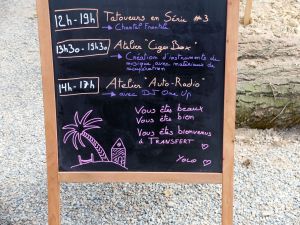 12h - 19h Tatoueurs en Série #3
Chantal Frontale
13h30 - 15h30 Atelier "Cigar Box"
Création d'instruments de
musique avec matériaux de
récupération
14h - 17h Atelier "Auto-Radio"
avec DJ One Up
Vous êtes beaux
Vous êtes bien
Vous êtes bienvenus
à TRANSFERT
YOLO